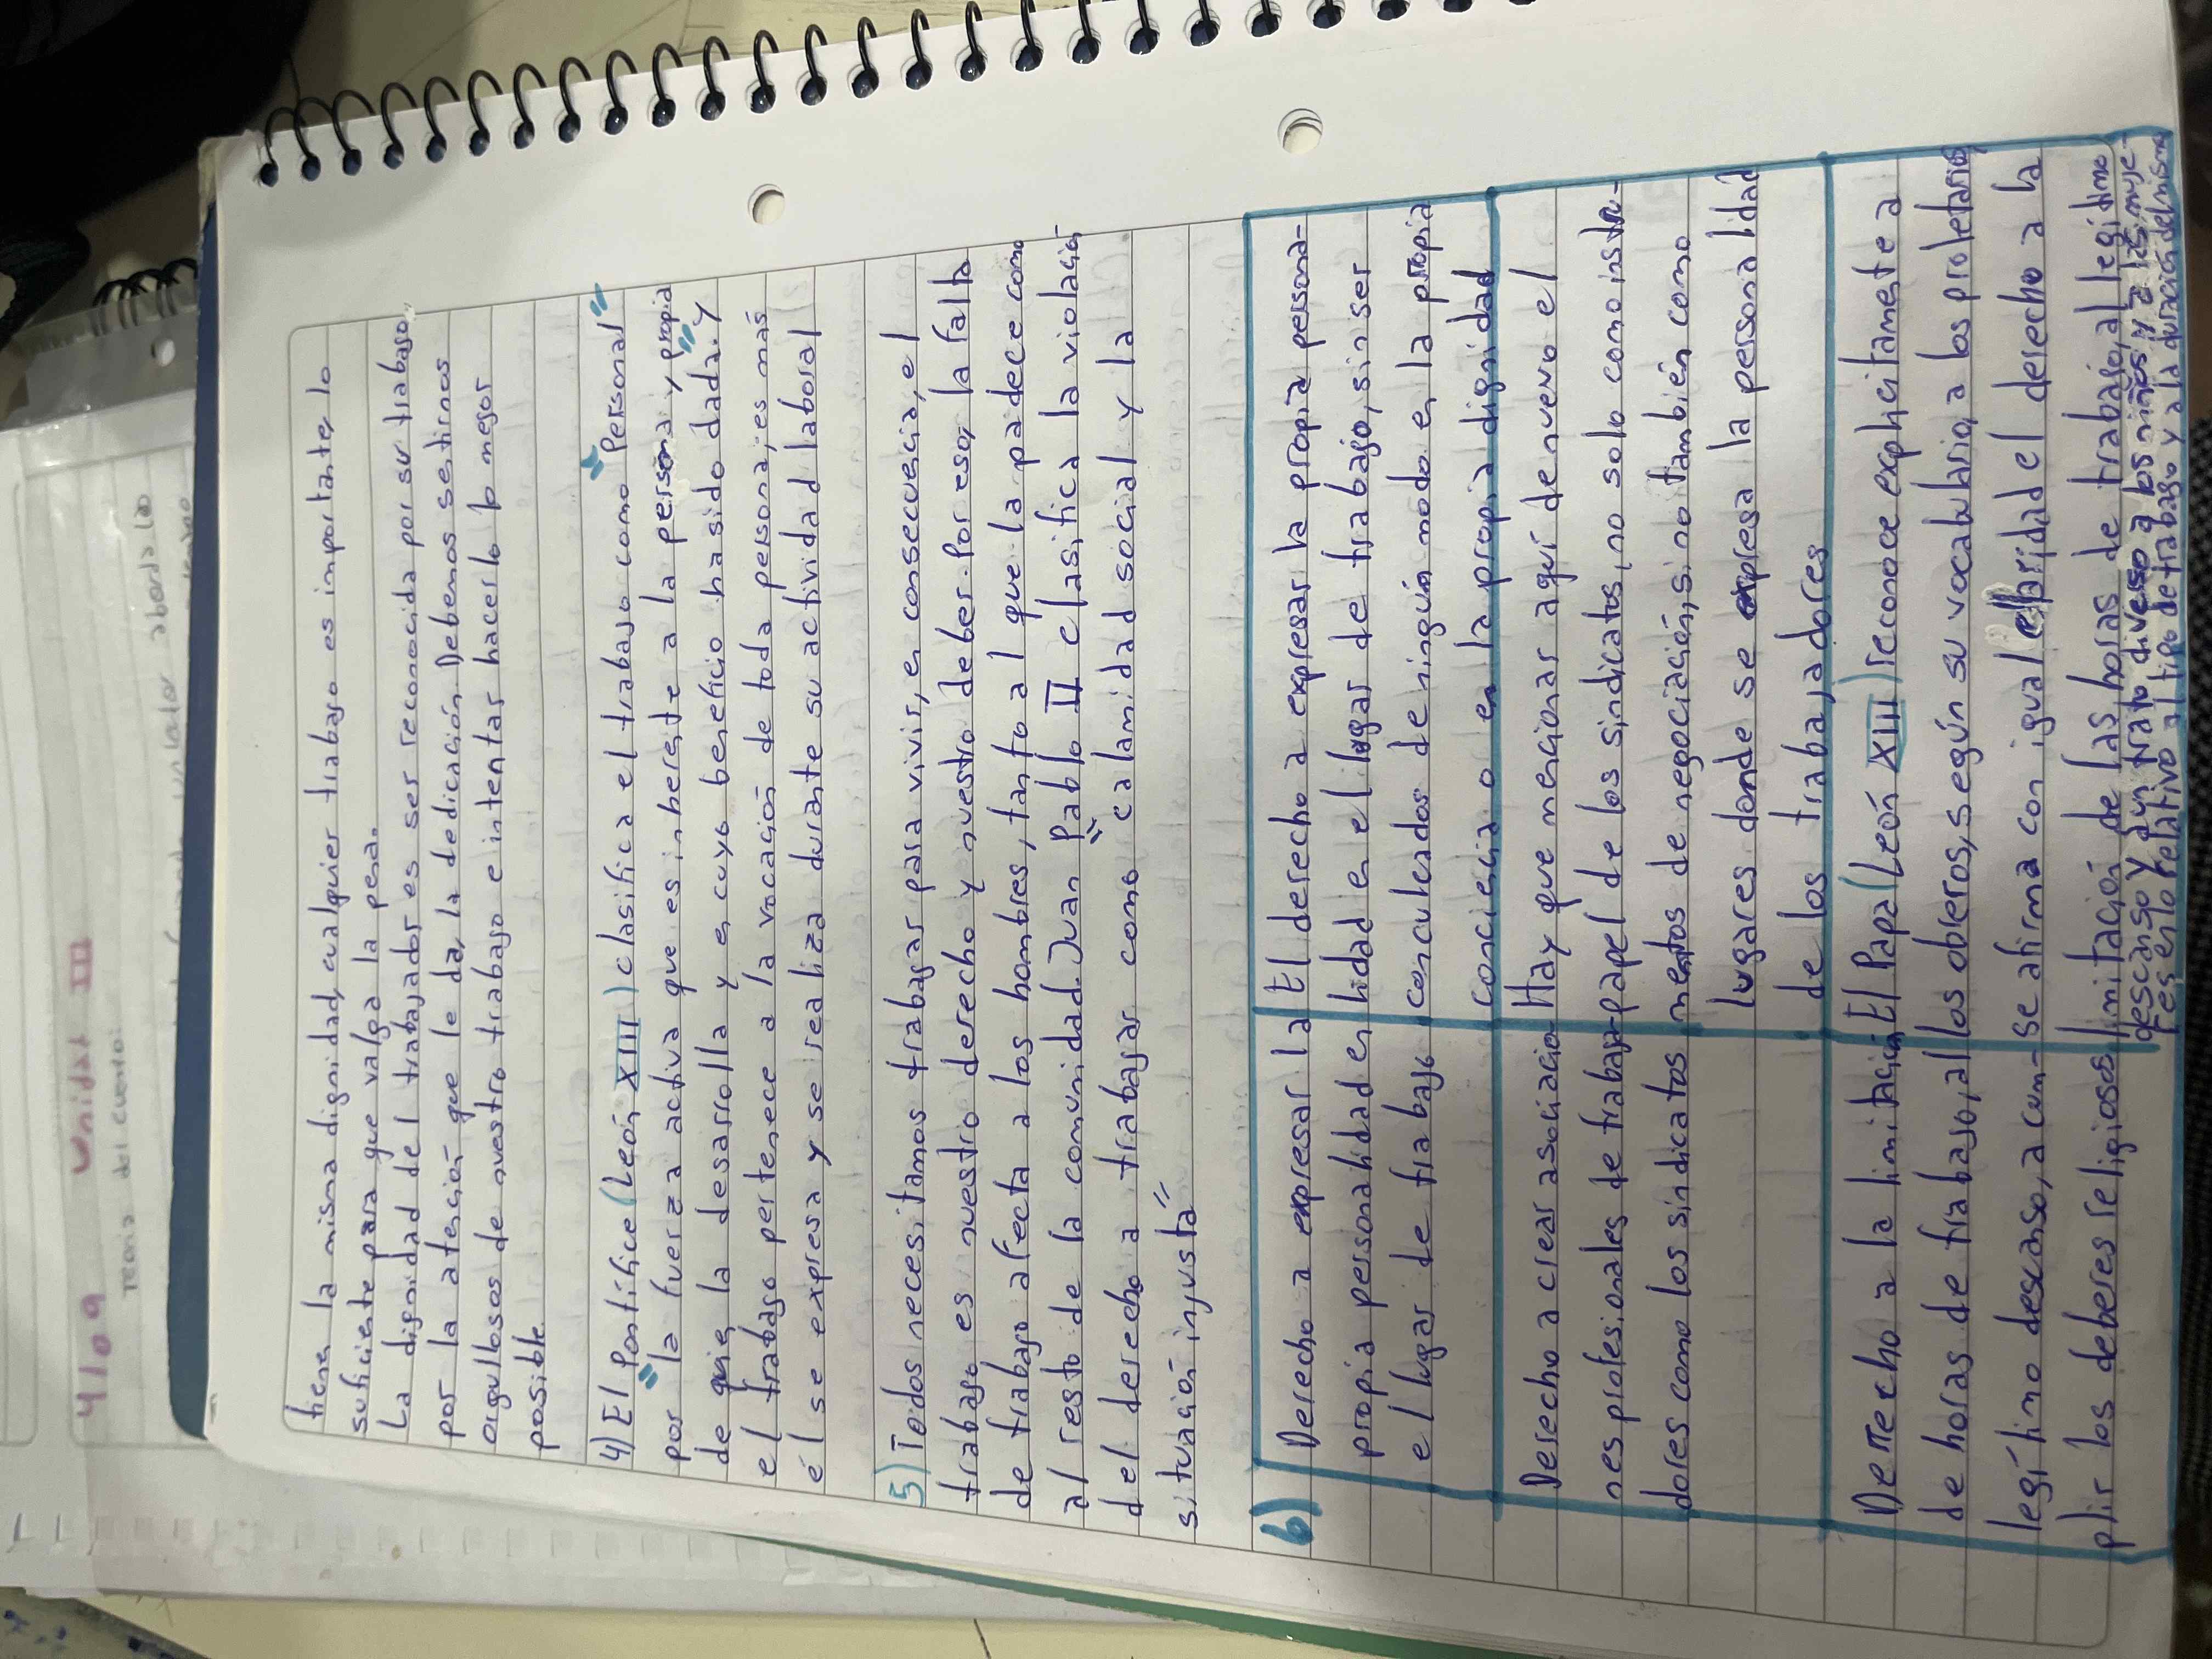 4/09 Unidad III
Teoría del cuento:
tiene la misma dignidad, cualquier trabajo es importante, lo
suficiente para que valga la pena.
La dignidad del trabajador es ser reconocida por su trabajo,
por la atención que le da, la dedicación. Debemos sentirnos
orgullosos de nuestro trabajo e intentar hacerlo lo mejor
posible.
4) El Pontífice (León XIII) clasifica el trabajo como "Personal"
por "la fuerza activa que es inherente a la persona y propia
de quien la desarrolla y en cuyo beneficio ha sido dada". Y
el trabajo pertenece a la vocación de toda persona; es más
él se expresa y se realiza durante su actividad laboral
5) Todos necesitamos trabajar para vivir, en consecuencia, el
trabajo es nuestro derecho y nuestro deber. Por eso, la falta
de trabajo afecta a los hombres, tanto al que la padece como
al resto de la comunidad. Juan Pablo II clasifica la violación
del derecho a trabajar como "calamidad social y la
situación injusta"
6)
Derecho a expresar la
propia personalidad en
el lugar de trabajo
El derecho a expresar la propia persona-
lidad en el lugar de trabajo, sin ser
conculcados de ningún modo en la propia
conciencia o en la propia dignidad
Derecho a crear asociacio-
nes profesionales de trabaja-
dores como los sindicatos
Hay que mencionar aquí de nuevo el
papel de los sindicatos, no solo como instru-
mentos de negociación, sino también como
lugares donde se expresa la personalidad
de los trabajadores
Derecho a la limitación
de horas de trabajo, al
legítimo descanso, a cum-
plir los deberes religiosos
El Papa (León XIII) reconoce explicitamente a
los obreros, según su vocabulario, a los proletarios,
se afirma con igual claridad el derecho a la
limitación de las horas de trabajo, al legítimo
descanso y a un trato diverso a los niños y a las muje-
res en lo relativo al tipo de trabajo y a la duración del mismo